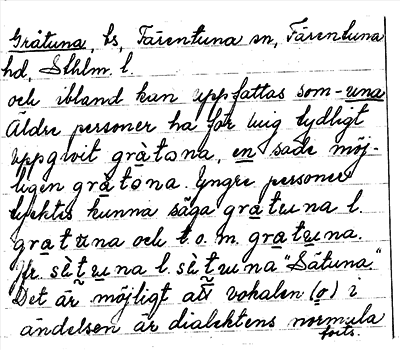 Gråtuna, bs, Färentuna sn, Färentuna
hd, Sthlm. l.
och ibland kan uppfattas som -una
Äldre personer ha för mig tydligt
uppgivit gråtona, en sade möj-
ligen gråtona. Yngre personer
tycktes kunna säga gratuna l.
gratuna och t.o.m. gratuna.
jfr. sètuna l. sètuna "Såtuna."
Det är möjligt att vokalen (o) i
ändelsen är dialektens normala
forts.